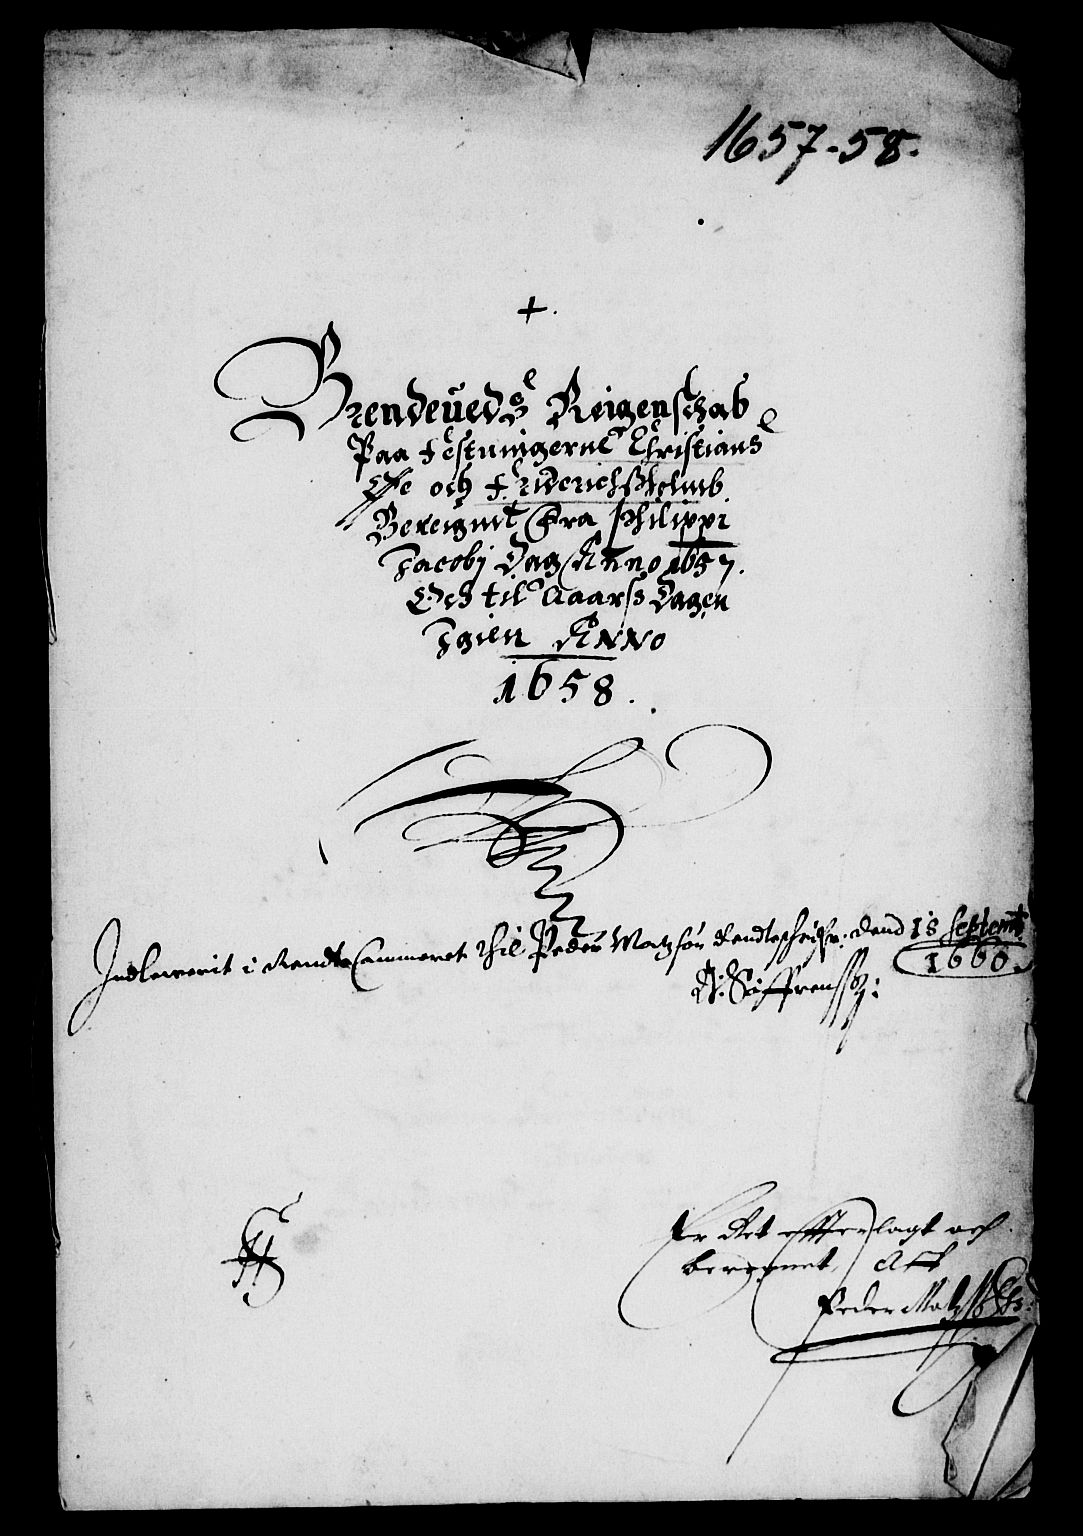 1657-58.
+.
Brendeueds Reigenschab
Paa Festningerne Christians
Øffe och Friderichsholmb
Bereignit Fra Philippi
Jacobj Dag Anno 1657.
Och til Aaars Dagen
Igien Anno
1658.
Indleverit i Rendte Cammeret thil Peder Matzsøn Rendteschrifr: dend 18 Septemb
1660.
A: Søffrenss:
Er Ret effterlagt och
beregnet, Aff
Peder Matz